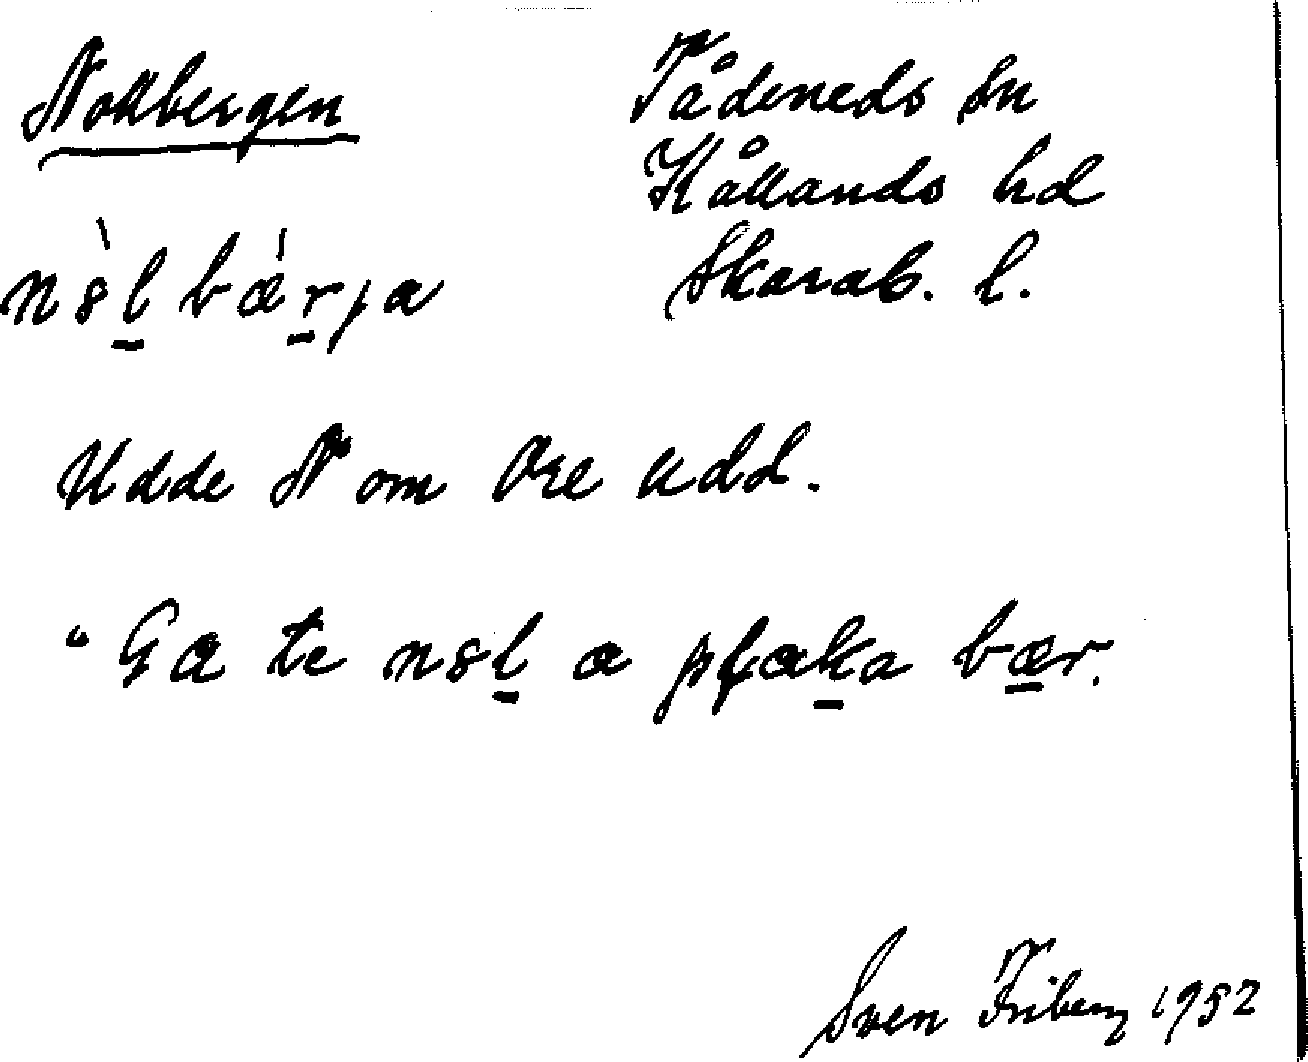 Nollbergen
Tådeneds sn
Kållands hd
Skarab. l.
n8̀l bǽrja
Udde N om Ore udd.
"Ga te n8l a plæka bær.
Sven Friberg 1952